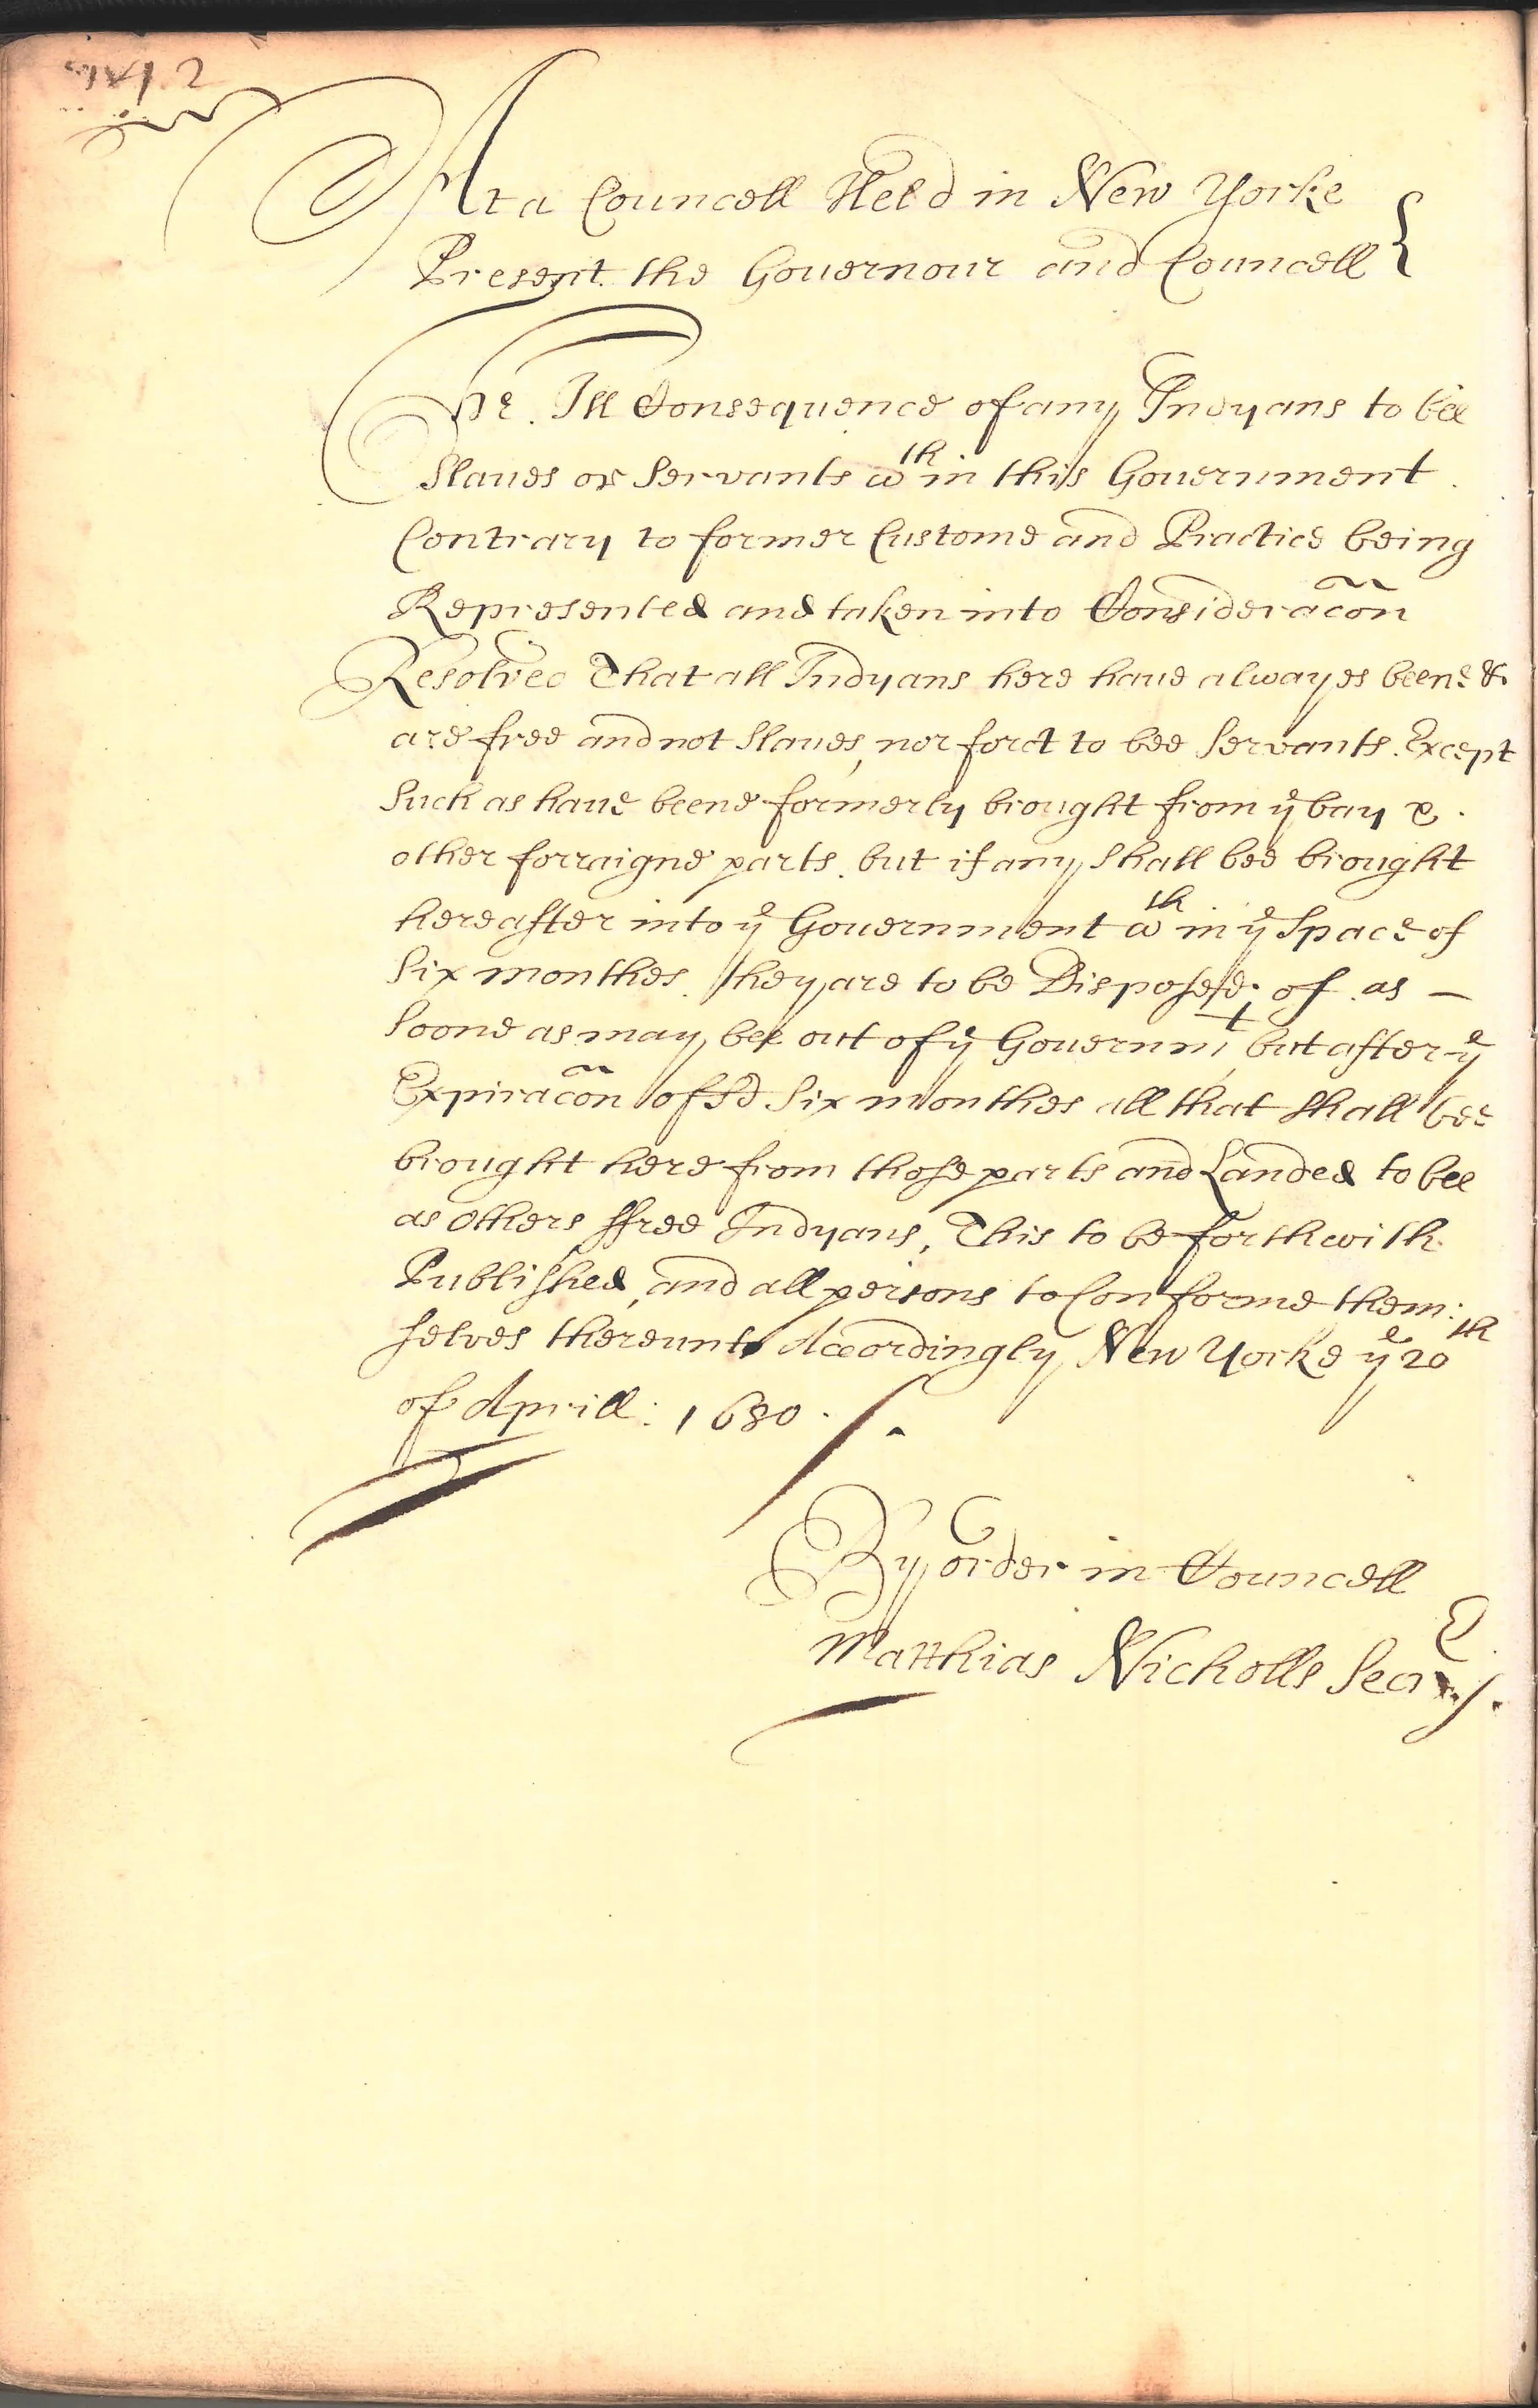 At a Councell Held in New Yorke
Present the Governour and Councell }
The Ill Consequence of any Indyans to bee
Slaues or Servants wth in this Gouernment
Contrary to former Custome and Practice being
Represented and taken into Consideracõn
Resolved That all Indyans here haue alwayes beene &
are free and not Slaues, nor forct to bee Servants. Except
Such as haue beene formerly brought from ye bay &
other forraigne parts. but if any Shall bee brought
hereafter into ye Gouernment wth in ye Space of
Six monthes. they are to be Disposed of as —
Soone as may bee out of ye Governmt, but after ye
Expiracõn of sd Six monthes all that Shall bee
brought here from those parts and Landed to bee
as others ffree Indyans, This to be forthwith
Published, and all persons to Conforme them:
selves thereunto Accordingly New Yorke ye 20th
of Aprill: 1680.
By order in Councell
Matthias Nicholls Secry.